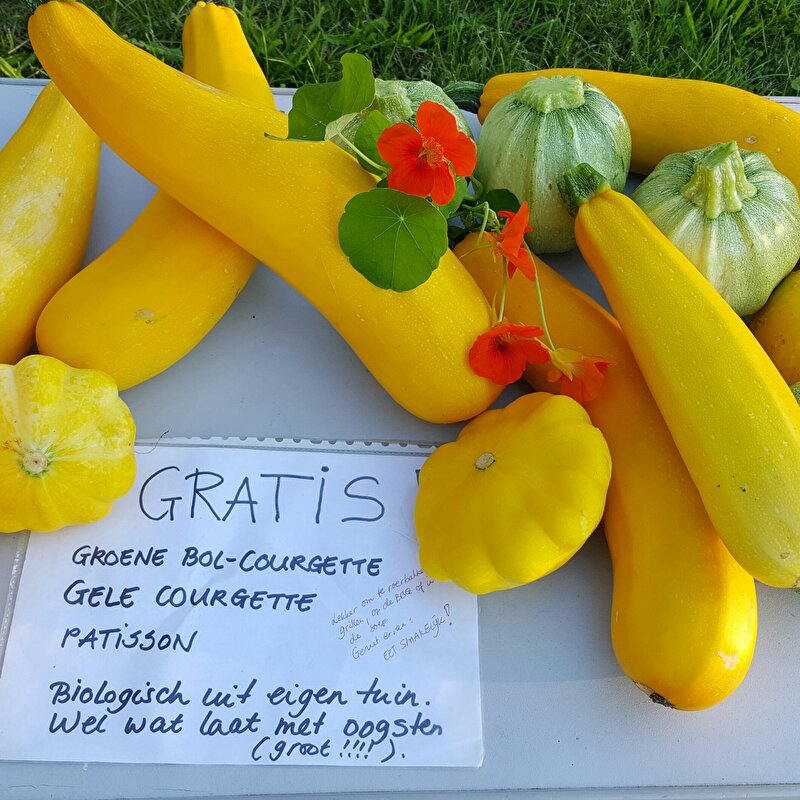 GRATIS!
GROENE BOL-COURGETTE
GELE COURGETTE
PATISSON
Lekker om te roerbakken
grillen op de BBQ of in
de soep
Geniet ervan!
EET SMAKELIJK!
Biologisch uit eigen tuin.
Wel wat laat met oogsten
(groot!!!!).